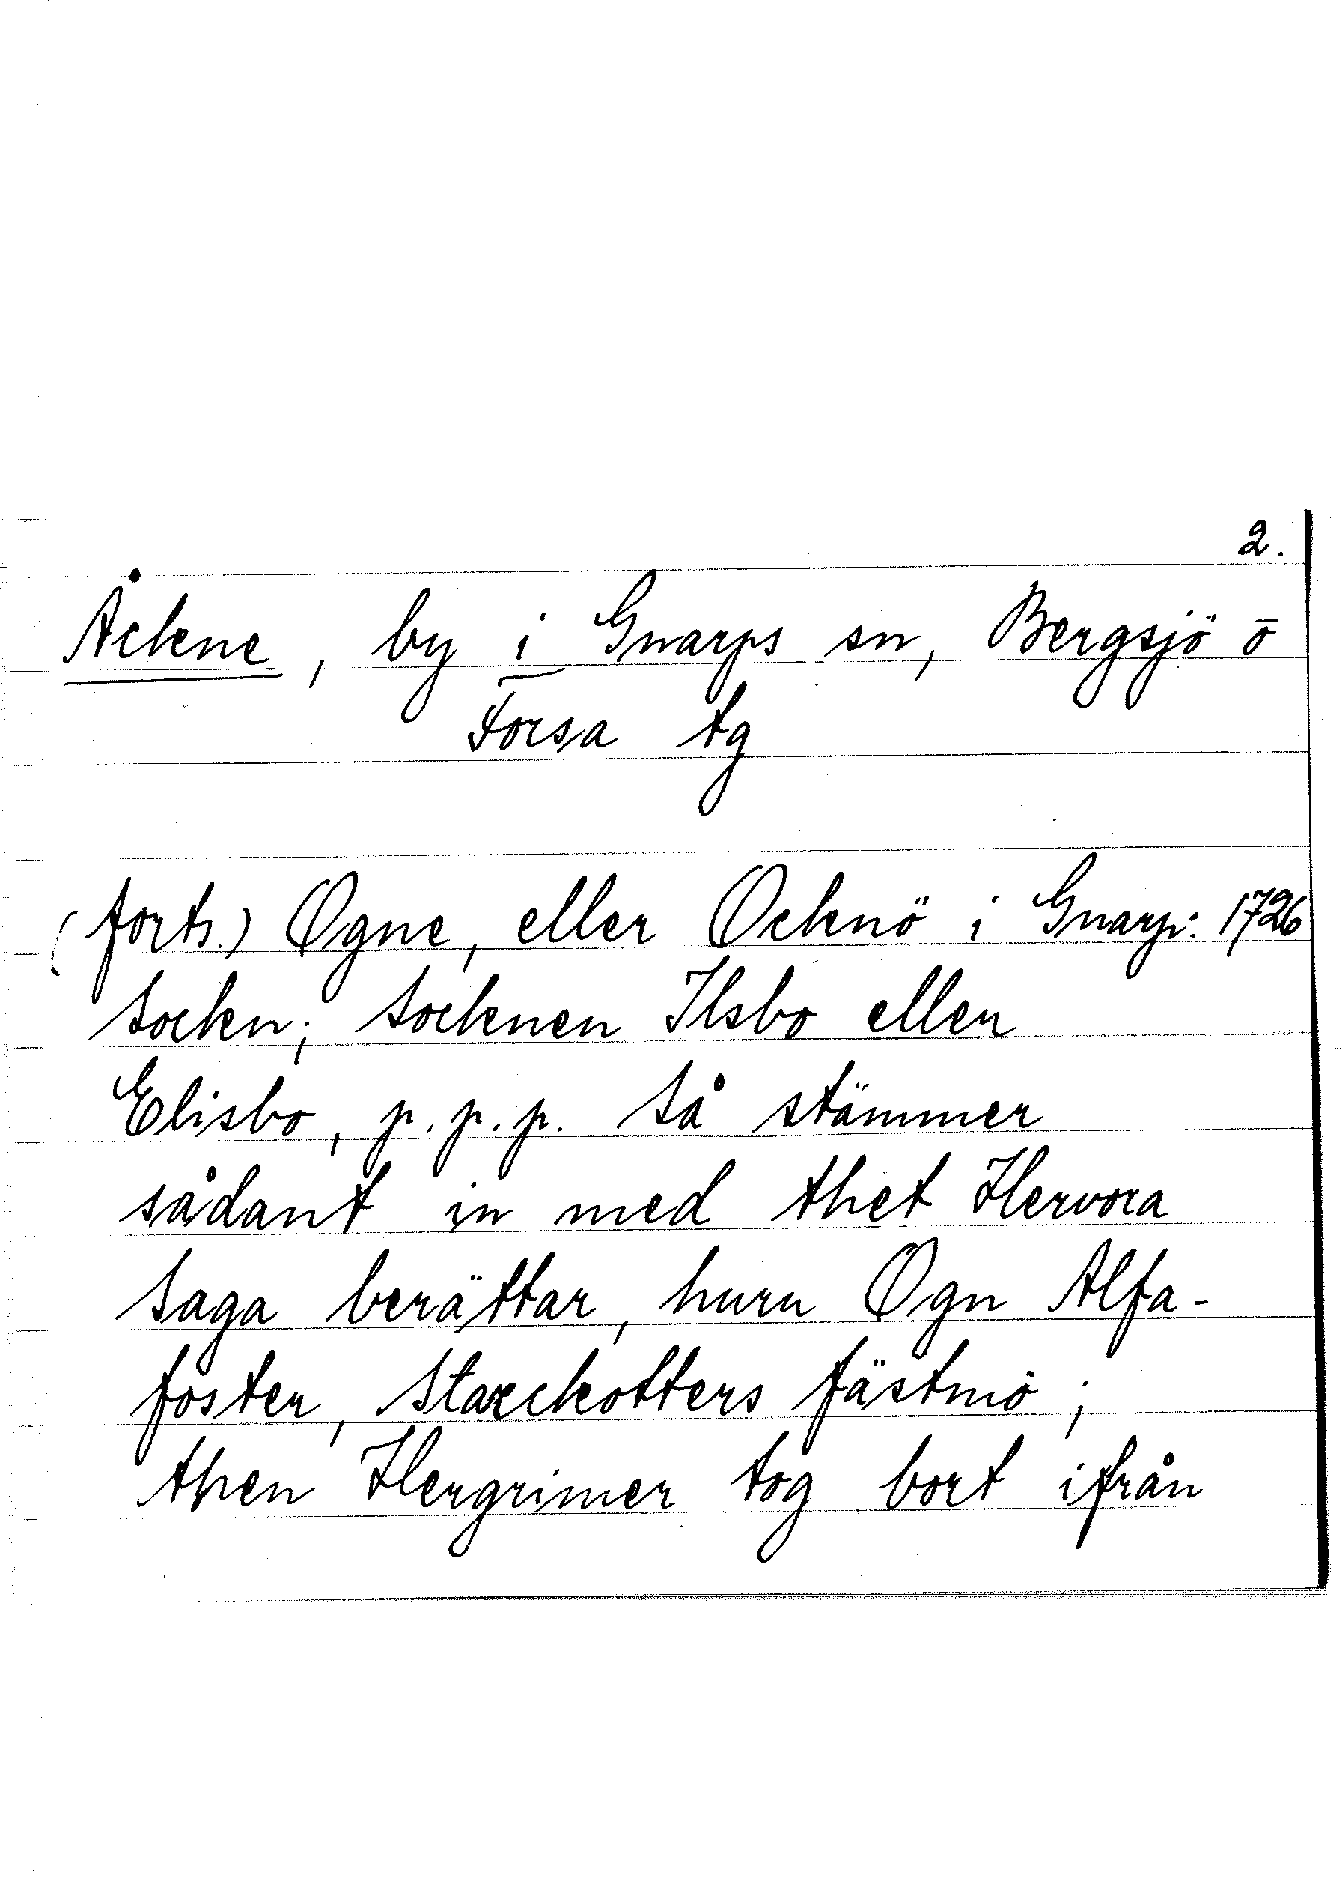 2.
Åckne, by i Gnarps sn, Bergsjö o
Forsa tg
(forts.) Ogne, eller Ocknö i Gnarp: 1726
Socken; Socknen Ilsbo eller
Elisbo, p.p.p. Så stämmer
sådant in med thet Hervora
Saga berättar, huru Ogn Alfa-
foster, Starckotters fästmö;
then Hergrimer tog bort ifrån